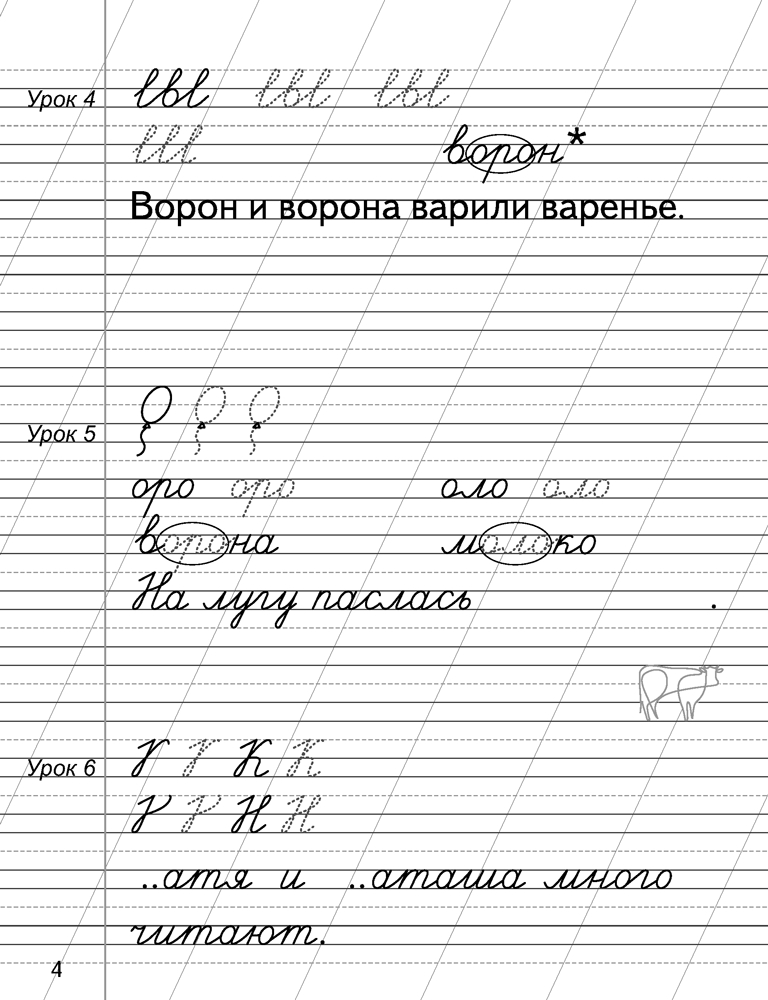 Урок 4
ворон*
Ворон и ворона варили варенье.
Урок 5
оро оро оло оло
ворона молоко
На лугу паслась .
Урок 6
К К
Н Н
..атя и ..аташа много
читают.
4